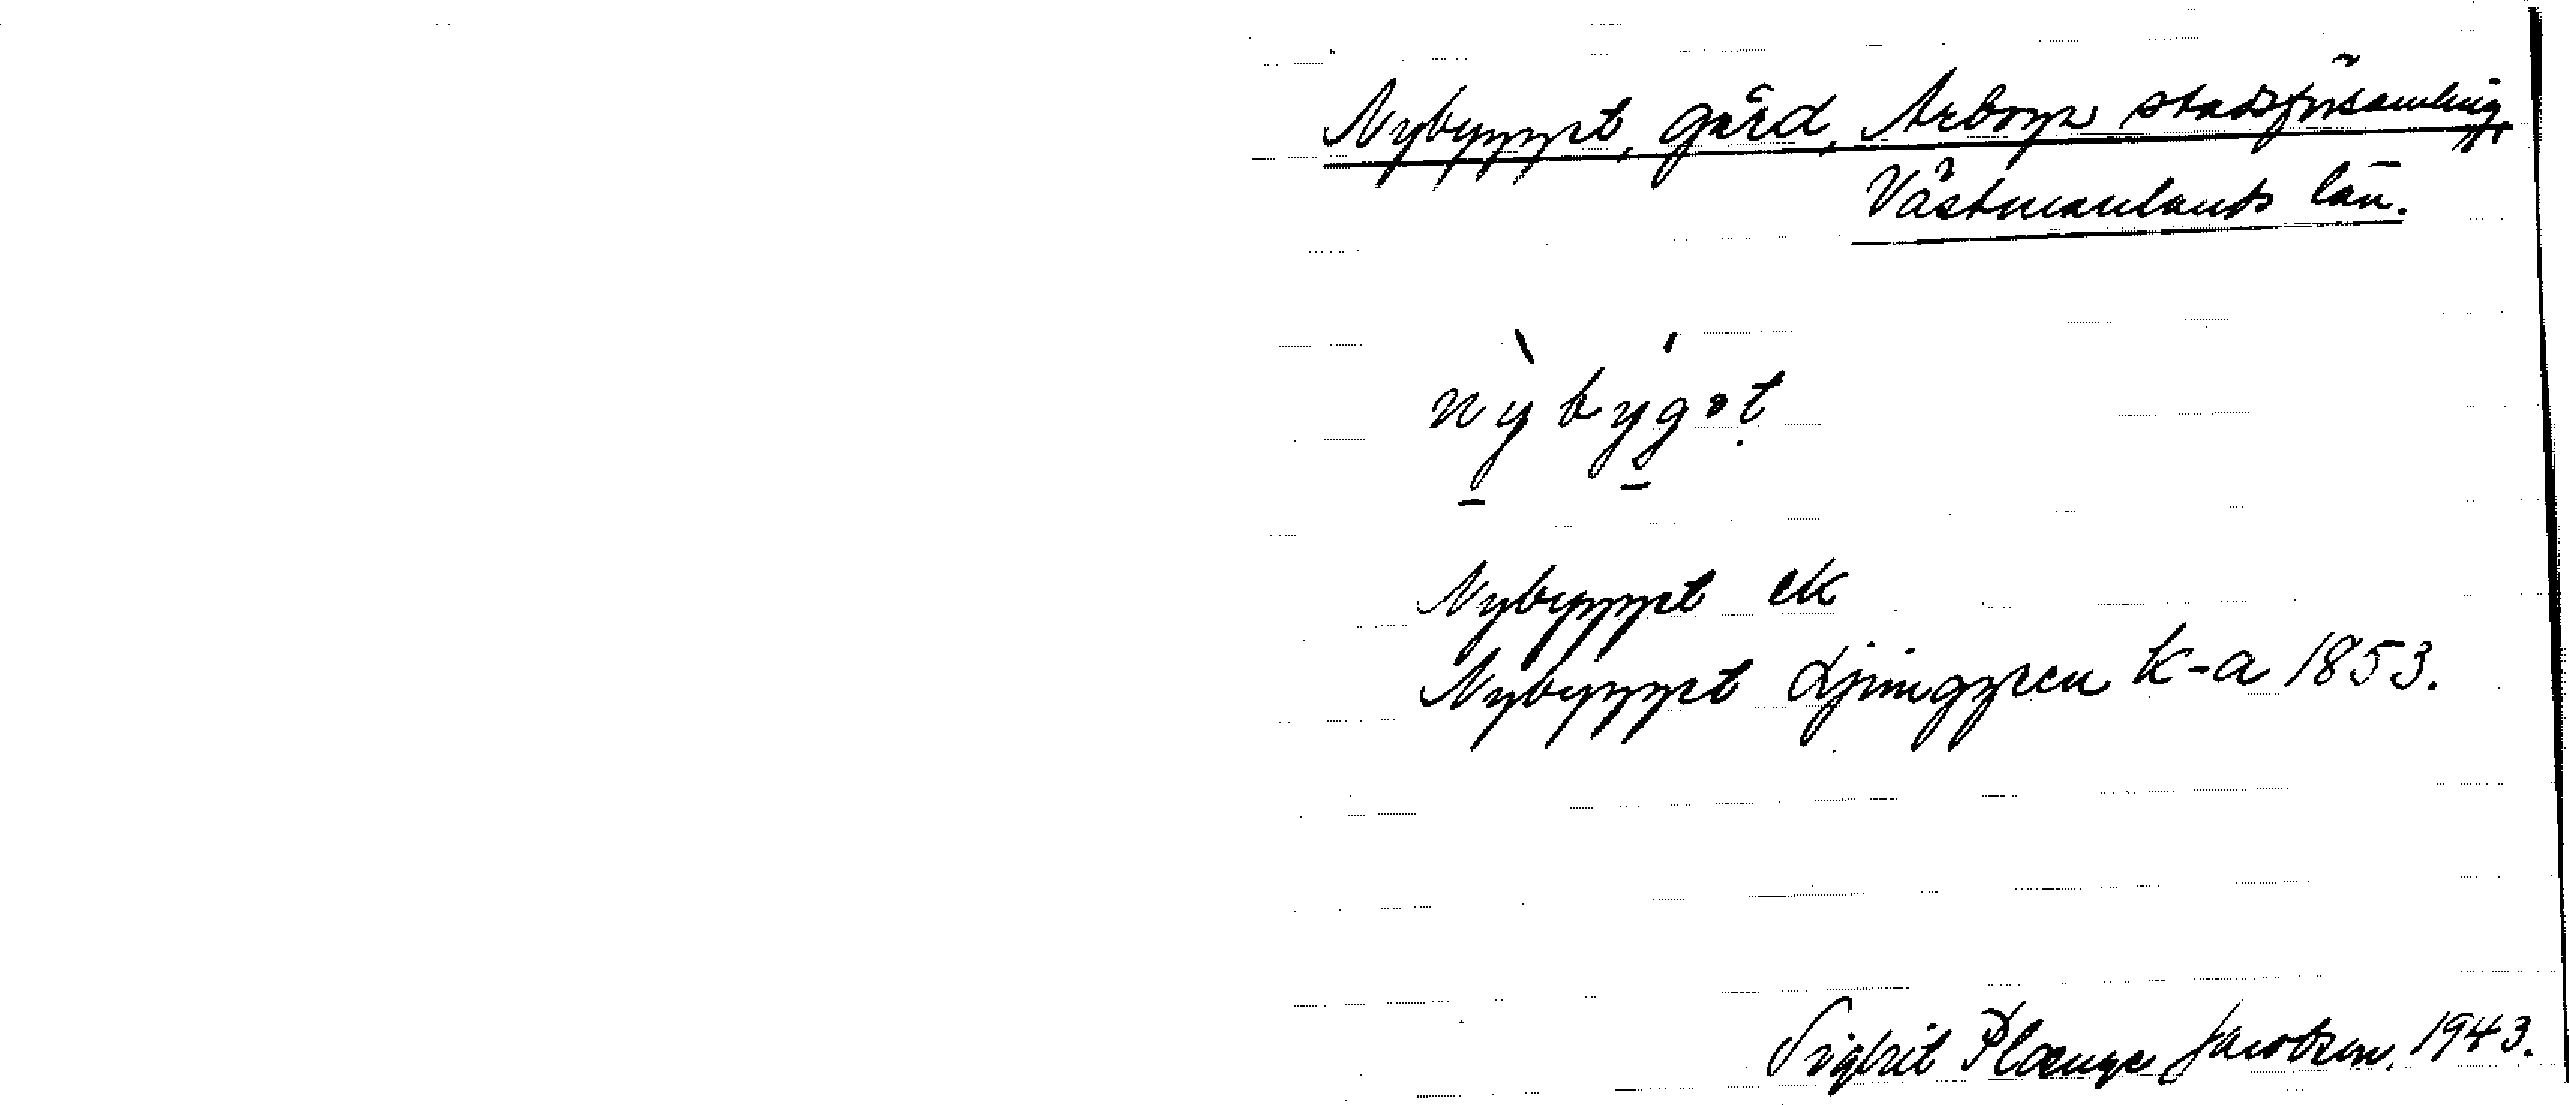 Nybygget, gård, Arboga stadsförsamling,
Västmanlands län.
Nybygget ek
Nybygget Ljunggren k-a 1853.
Sigbrit Plænge Jacobson, 1943.